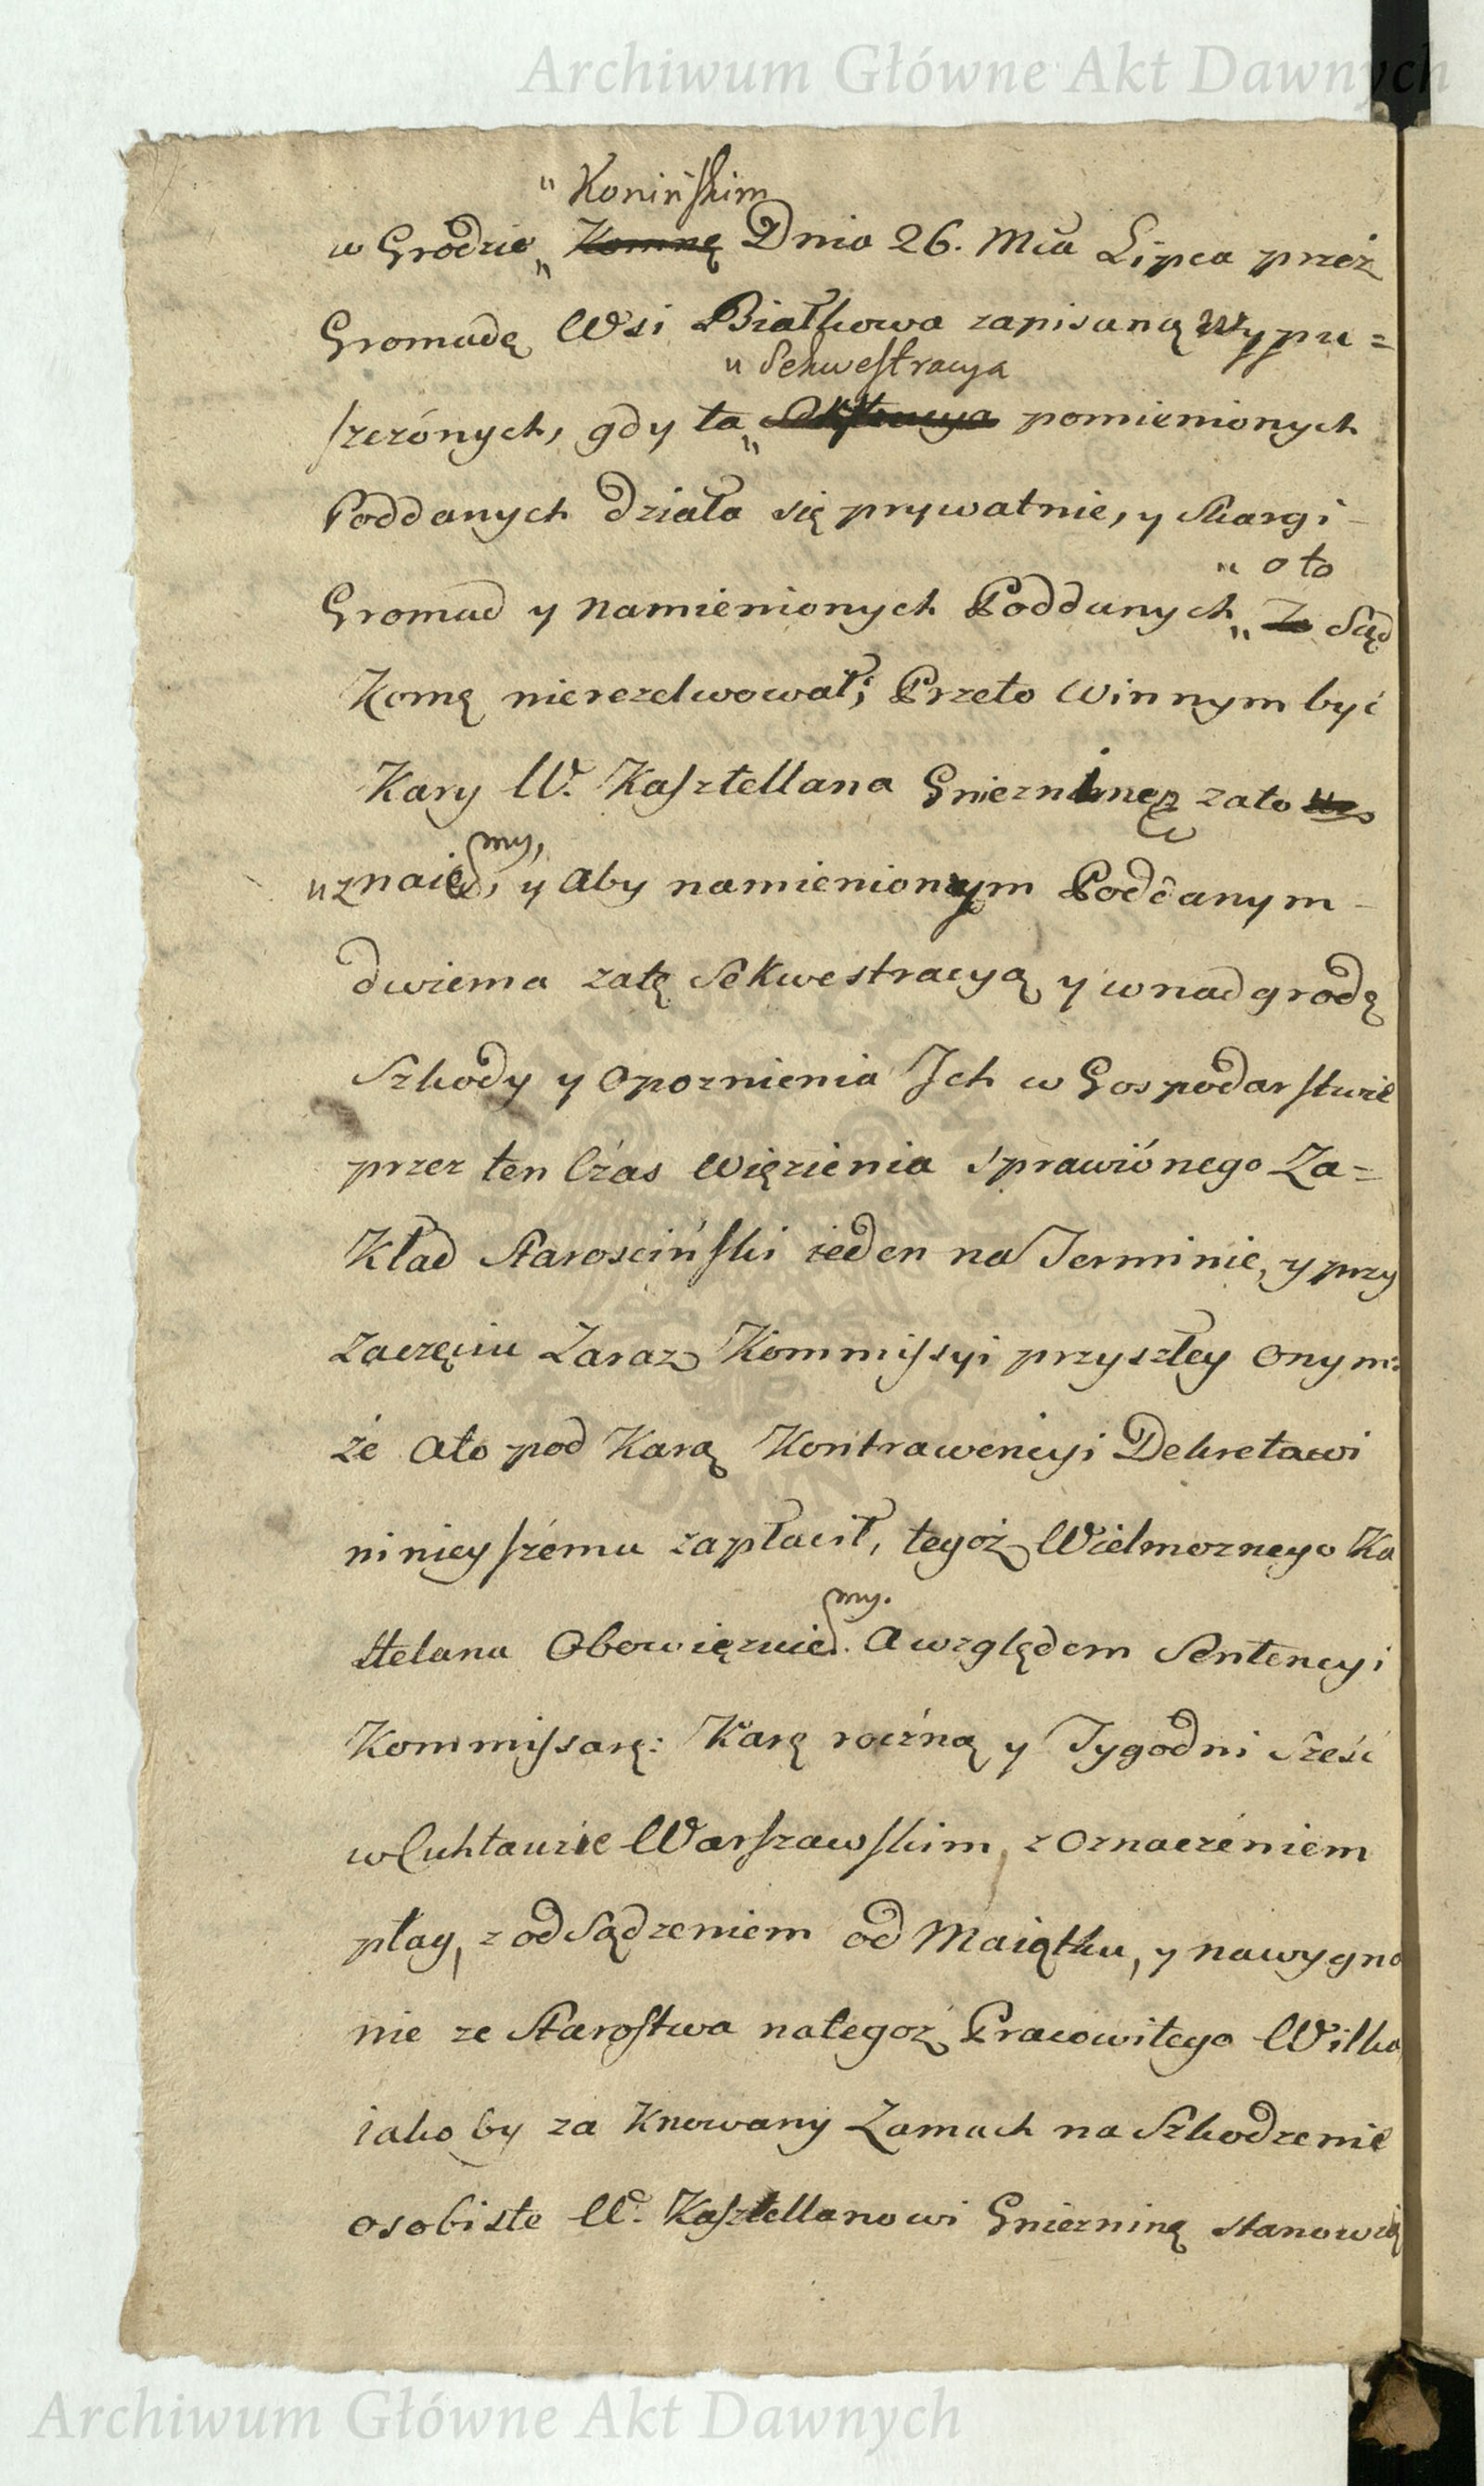 Archiwum Główne Akt Dawnych
" Konińskim
w Grodzie „ Komnę Dnia 26. Mca Lipca przéz
Gromadę Wsi Białkowa zapisaną Wypu =
" Sekwestracya
szczónych, gdy ta „ pomienionych
Poddanych działa się prywatnie, y Skargi -
" oto
Gromad y namienionych Poddanych „ Za Sąd
Komę nierezelwował; Przeto winnym być
Kary W. Kasztellana Gniezninę zato
my,
uznaie, y aby namienionym Poddanym -
dwiema zatę Sekwestracyą y wnadgrodę
Szkody y Opoznienia Jch w Gospodarstwie
przez ten Czas Więzienia sprawiónego Za =
Kład Starosciński ieden na Terminie, y przy
Zaczęciu Zaraz Kommissyi przyszłey Onym=
że Ato pod Karą Kontrawencyi Dekretowi
ninieyszému zapłacił, tegoż Wielmoznego Ka
sztelana Obowięzuie. A względem Sentencyi
my.
Kommissarę: Karę roczną y Tygodni Sześć
w Cuhtauzie Warszawskim, z Oznaczéniem
plag, z odsądzeniem od Maiątku, y nawygna
nie ze Starostwa nategoż Pracowitego Wilka
iakoby za Knowany Zamach na Szkodzenie
osobiste W. Kasztellanowi Gniezninę stanowią
Archiwum Główne Akt Dawnych